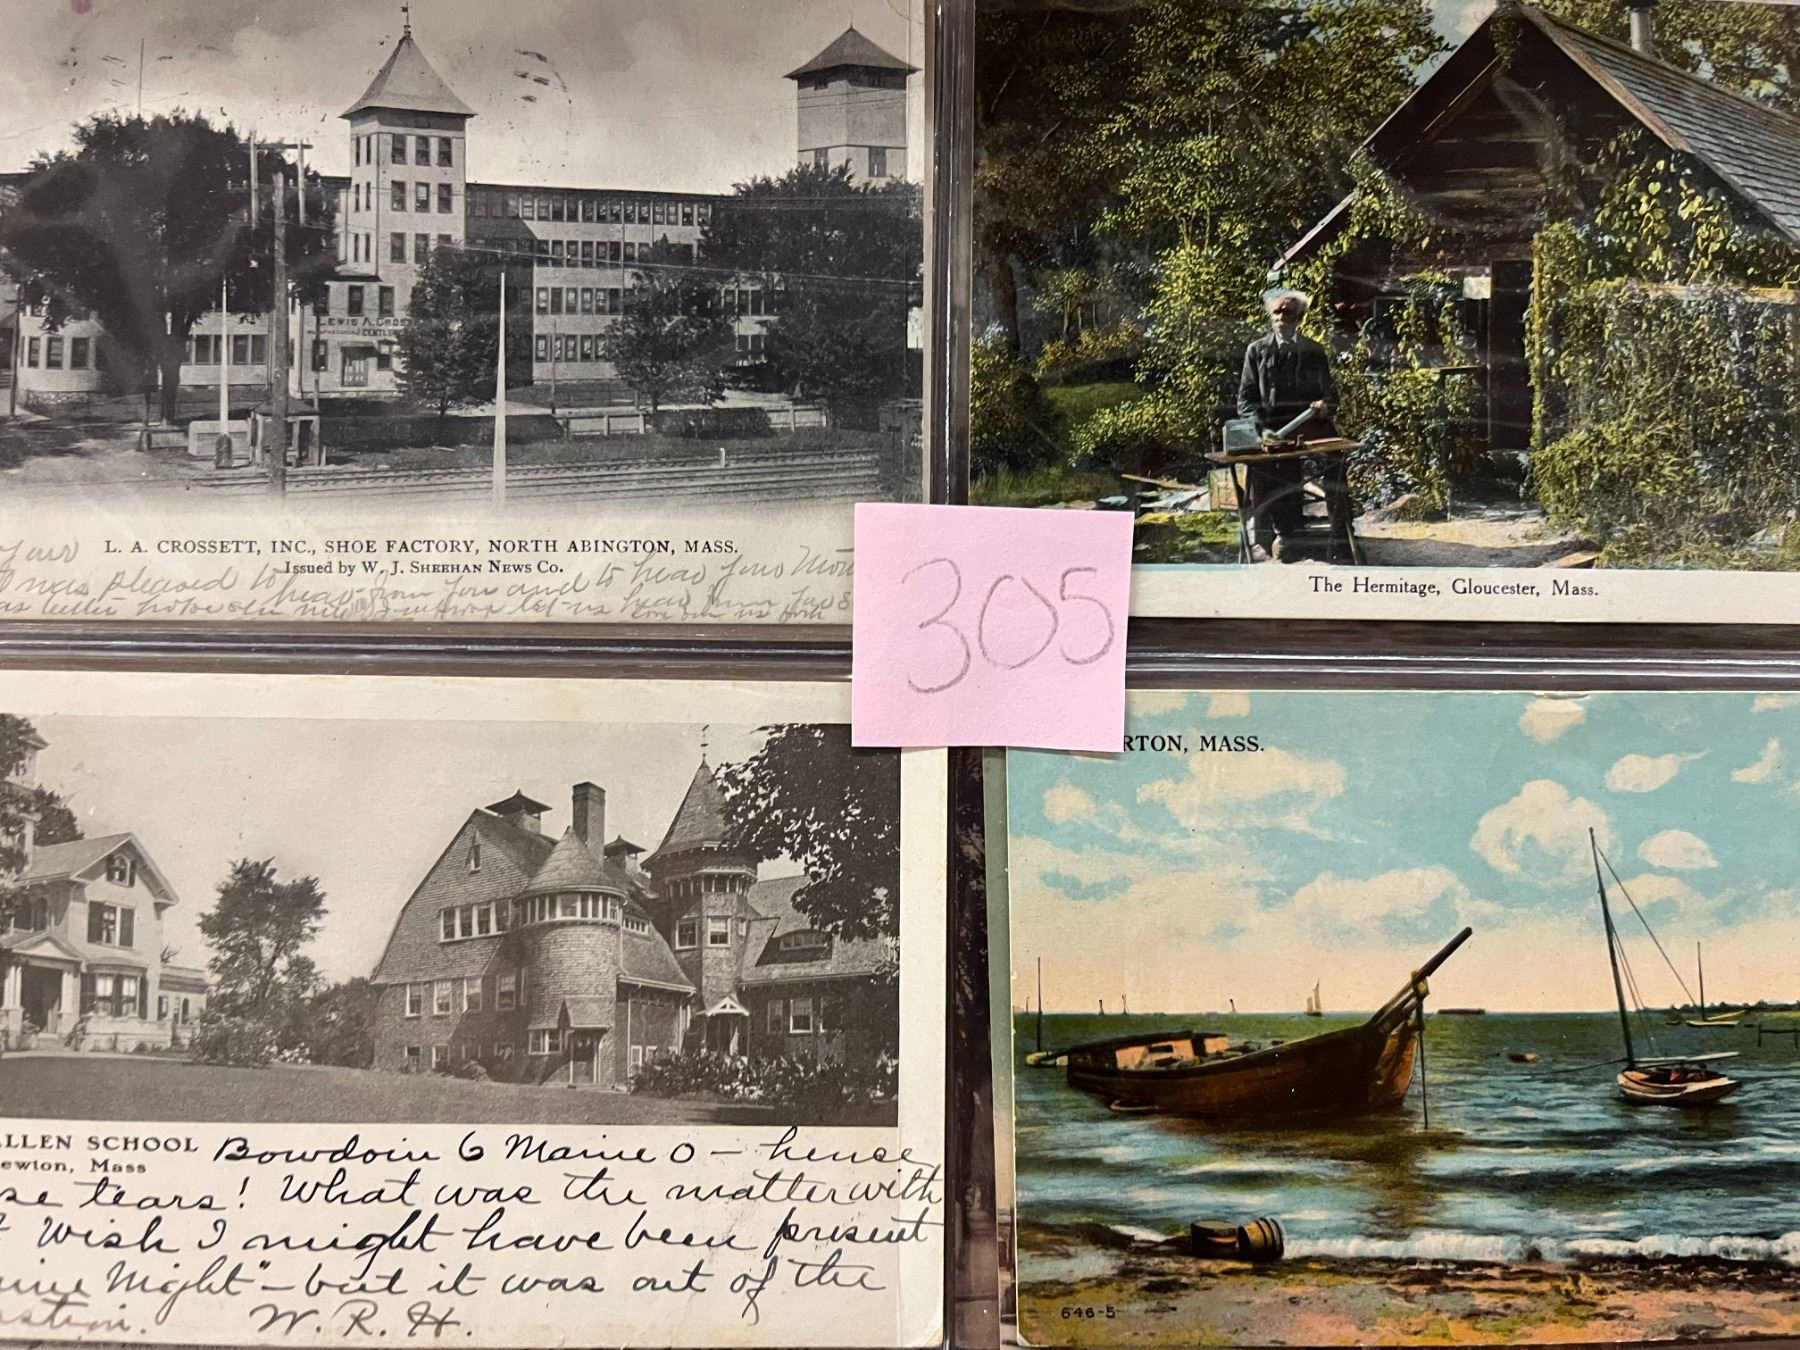 LEWIS A. CROS
L. A. CROSSETT, INC., SHOE FACTORY, NORTH ABINGTON, MASS.
Issued by W. J. SHEEHAN NEWS CO.
was pleased to hear from you and to hear your
let us hear from
The Hermitage, Gloucester, Mass.
305
RTON, MASS.
646-5
ALLEN SCHOOL Bowdoin 6 Maine 0 – hense
ewton, Mass
se tears! What was the matter with
Wish I might have been present
Night" – but it was out of the
stion. W. R. H.